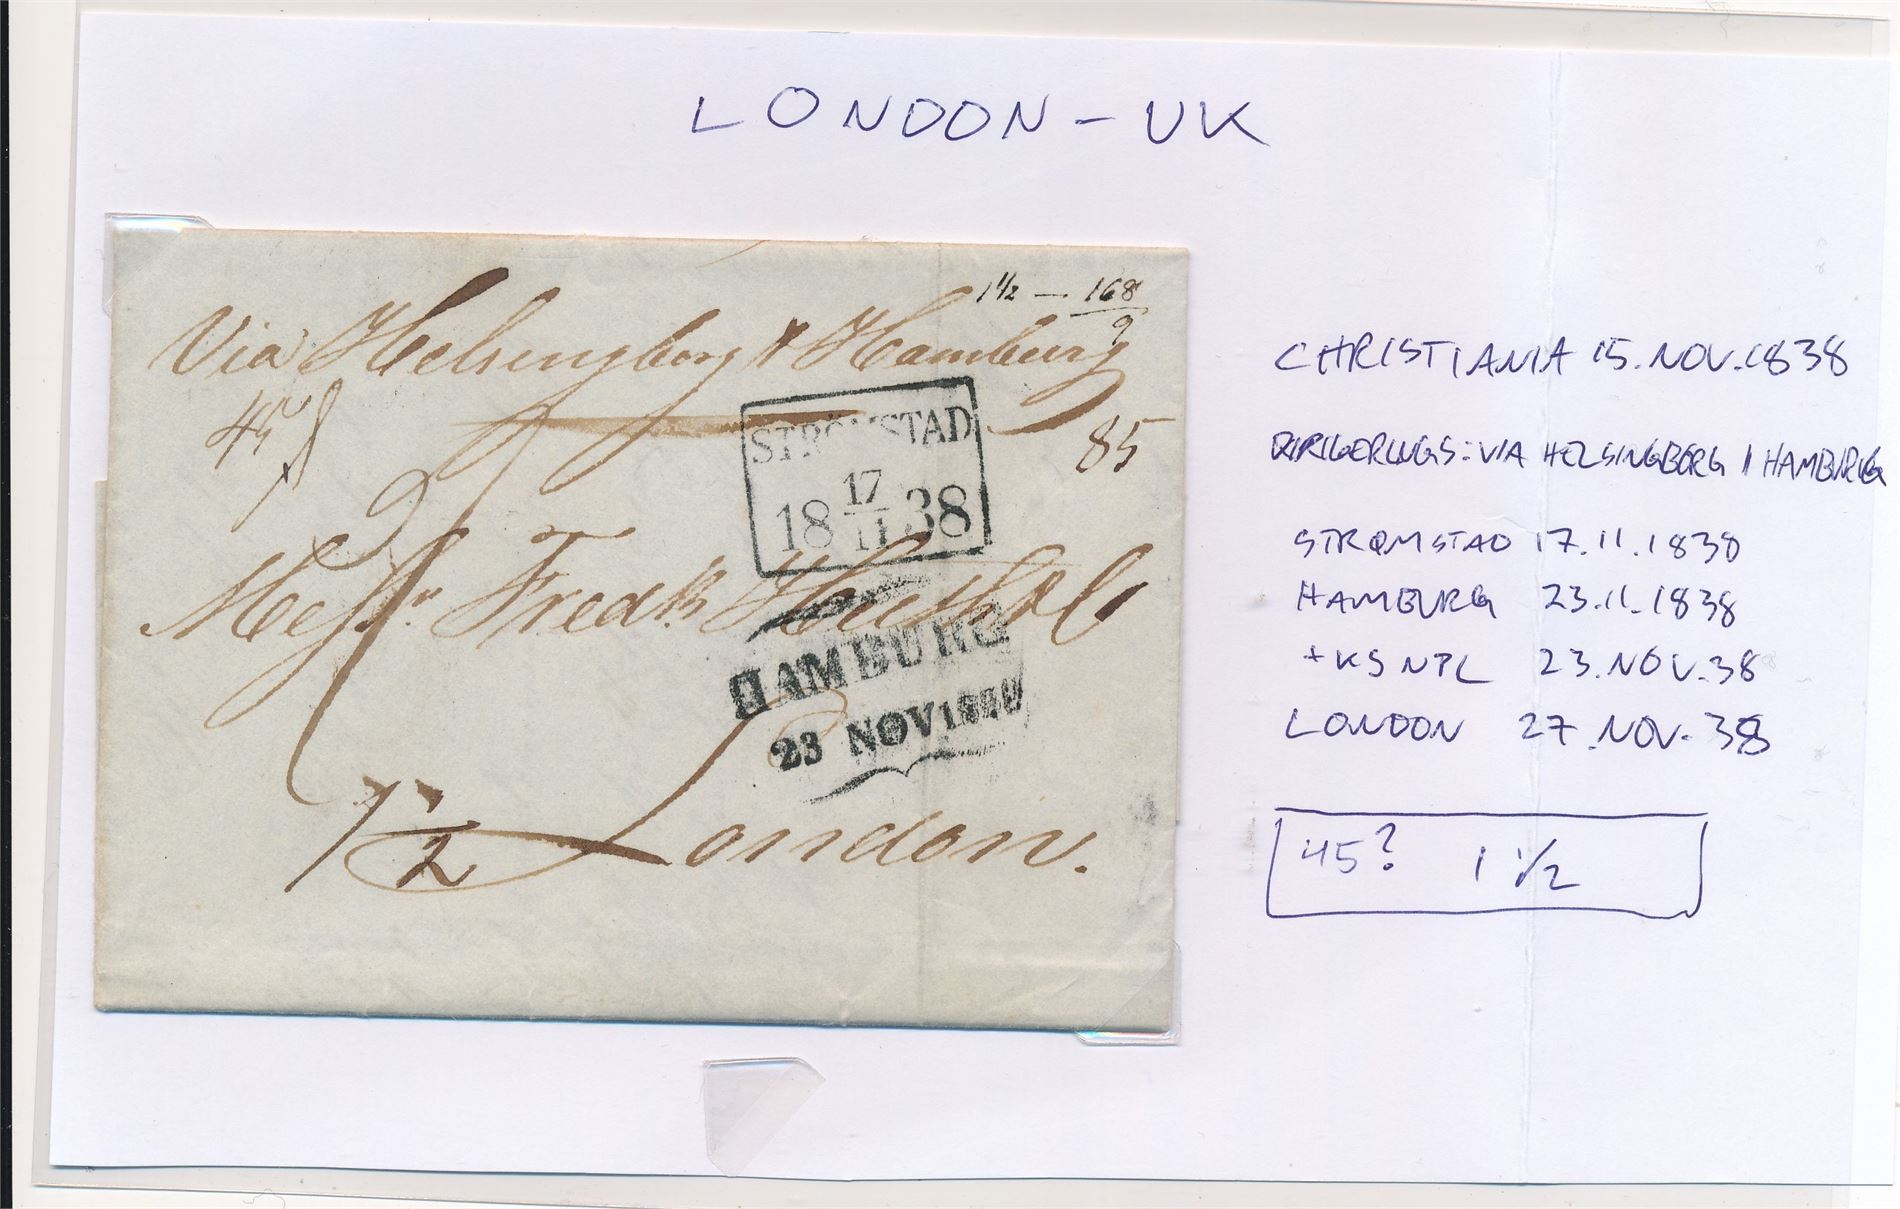 LONDON - UK
1½ — 168
9
Via Helsingborg & Hamburg
45
85
STRÖMSTAD
18 17/11 38
Messrs. Fredk Huth & Co
HAMBURG
23 NOV 1838
1/2
London.
CHRISTIANIA 15. NOV. 1838
DIRIGERINGS: VIA HELSINGBORG / HAMBURG
STRØMSTAD 17.11.1838
HAMBURG 23.11.1838
+ KS NPL 23. NOV. 38
LONDON 27. NOV. 38
45? 1 1/2